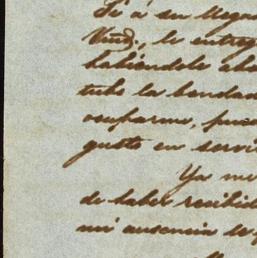 Fé á su llega
Vmd., le entreg
habiendole abo
tubo la bondad
ocuparme, pue
gusto en servi
Ya me
de haber recibid
mi ausencia se